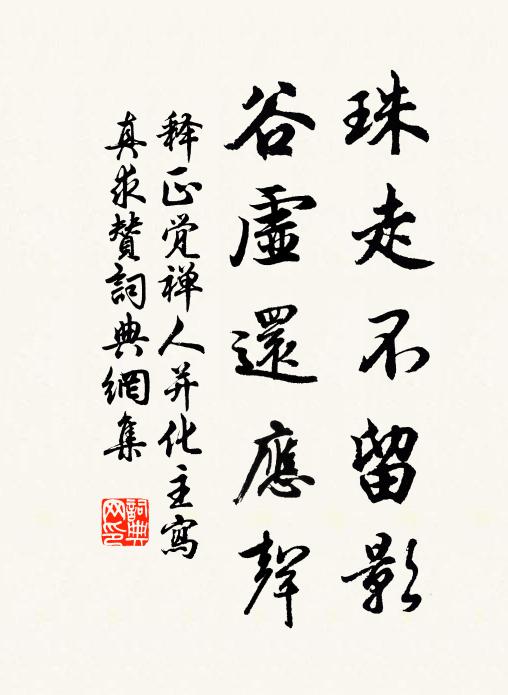 珠走不留影
谷虛還應聲
释正觉禅人并化主寫
真求贊詞典網集
詞典网印